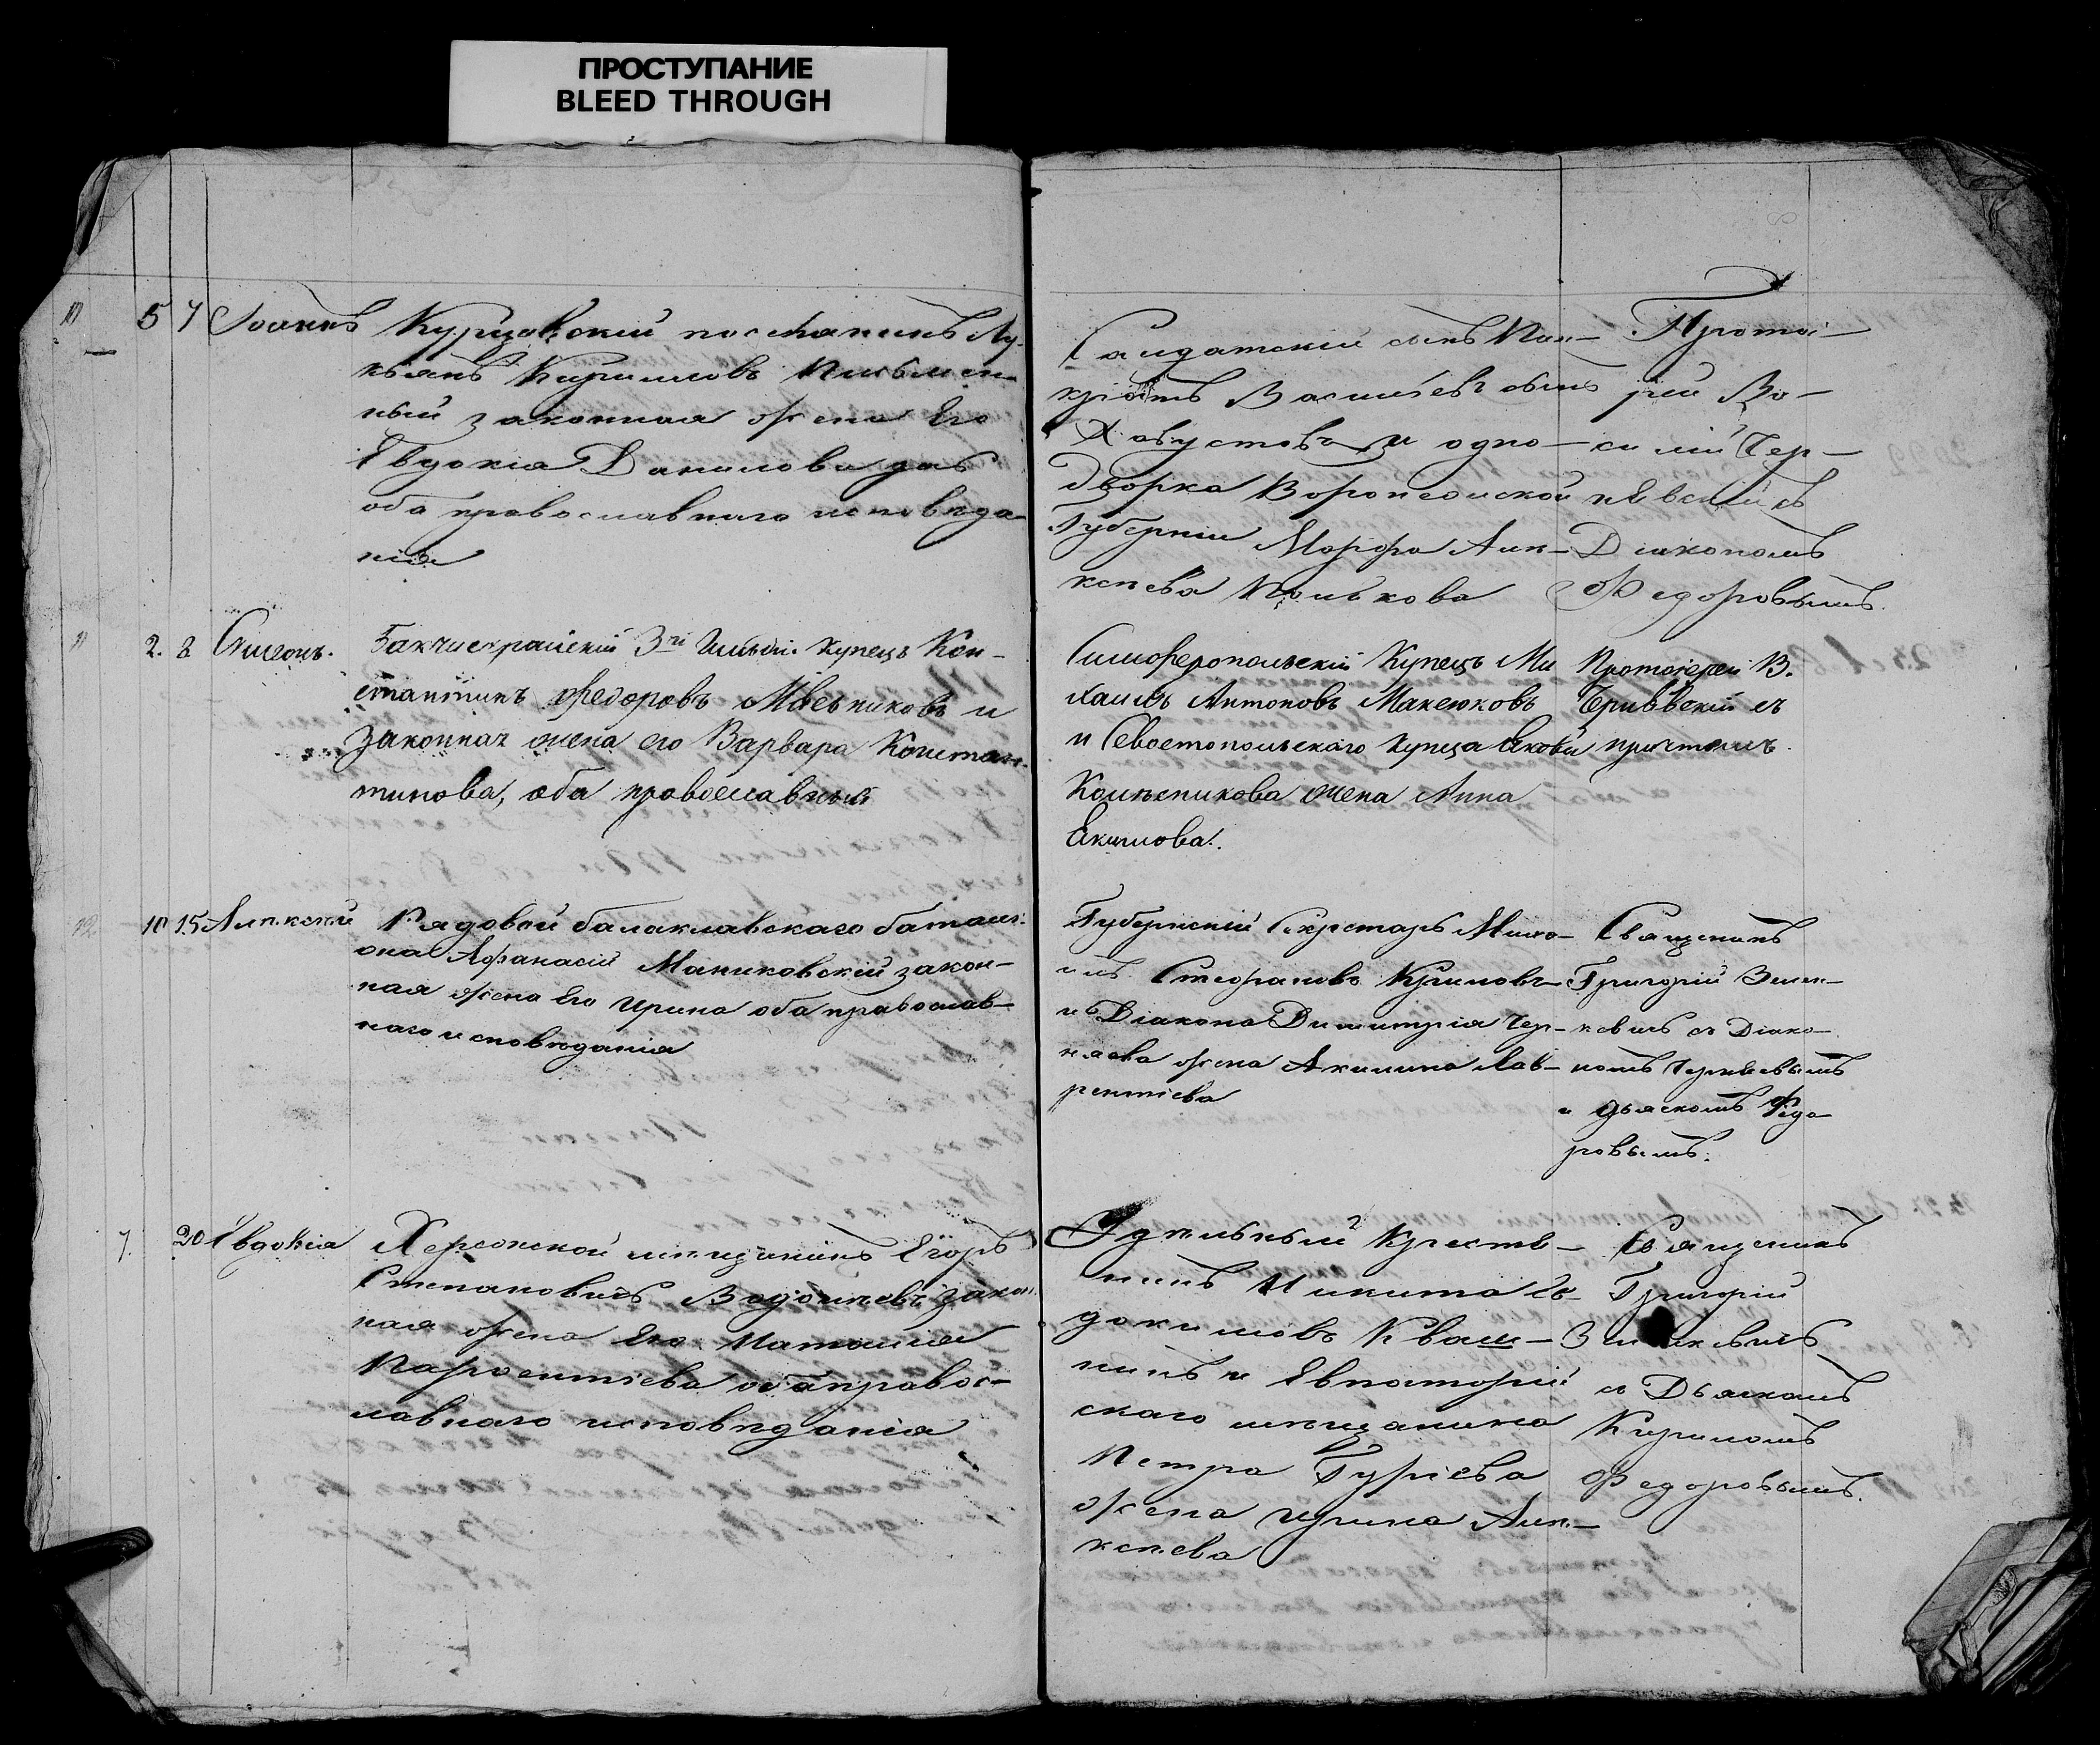 ПРОСТУПАНИЕ
BLEED THROUGH
10 5 7 Іоаннъ
Курцовскій поселянинъ Лу-
кьянъ Кириловъ Письмен-
ный законная жена Его
Евдокія Данилова
оба православнаго исповѣда-
нія
Салдатскій сынъ Пан-
кратъ Васильевъ сынъ
Хавустовъ и одно-
дворка Воронежской
Губерніи Марфа Алѣ-
ксѣева Полькова
Протоі-
рей Ва-
силій Чер-
нѣвскій съ
Діакономъ
Федоровымъ.
11 2. 8 Симеонъ.
Бакчисарайскій 3й Гильдіи Купецъ Кон-
стантинъ Федоровъ Мѣльниковъ и
Законная жена его Варвара Констан-
тинова, оба православныя
Симферопольскій Купецъ Ми
хаилъ Антоновъ Макеюковъ
и Севостопольскаго Купца Якова
Колѣсникова жена Анна
Екимова.
Протоіерей В.
Чернѣвскій съ
причтомъ.
12 10 15 Алѣксѣй
Рядовой балаклавскаго баталі-
она Афанасій Маниковскій закон-
ная жена Его Ирина оба православ-
наго исповѣданія
Губернскій Секретарь Миха-
илъ Стефановъ Куликовъ
и Діакона Димитрія Чер-
няева жена Акилина Лав-
рентіева
Священникъ
Григорій Зень-
кевичъ съ Діако-
номъ Черняевымъ
и дьячкомъ Федо
ровымъ.
7. 20 Евдокія
Херсонской мѣщанинъ Егоръ
Степановичъ закон
ная жена Его Наталія
Парфентіева оба правос-
лавнаго исповѣданія
Удѣльный Крестья-
нинъ Никита Ев-
докимовъ Кваш-
нинъ и Евпаторій
скаго мѣщанина
Петра Гуріева
жена Ирина Алѣ-
ксѣева
Священникъ
Григорій
Зенькевичъ
съ Дьячкомъ
Кириломъ
Федоровымъ.